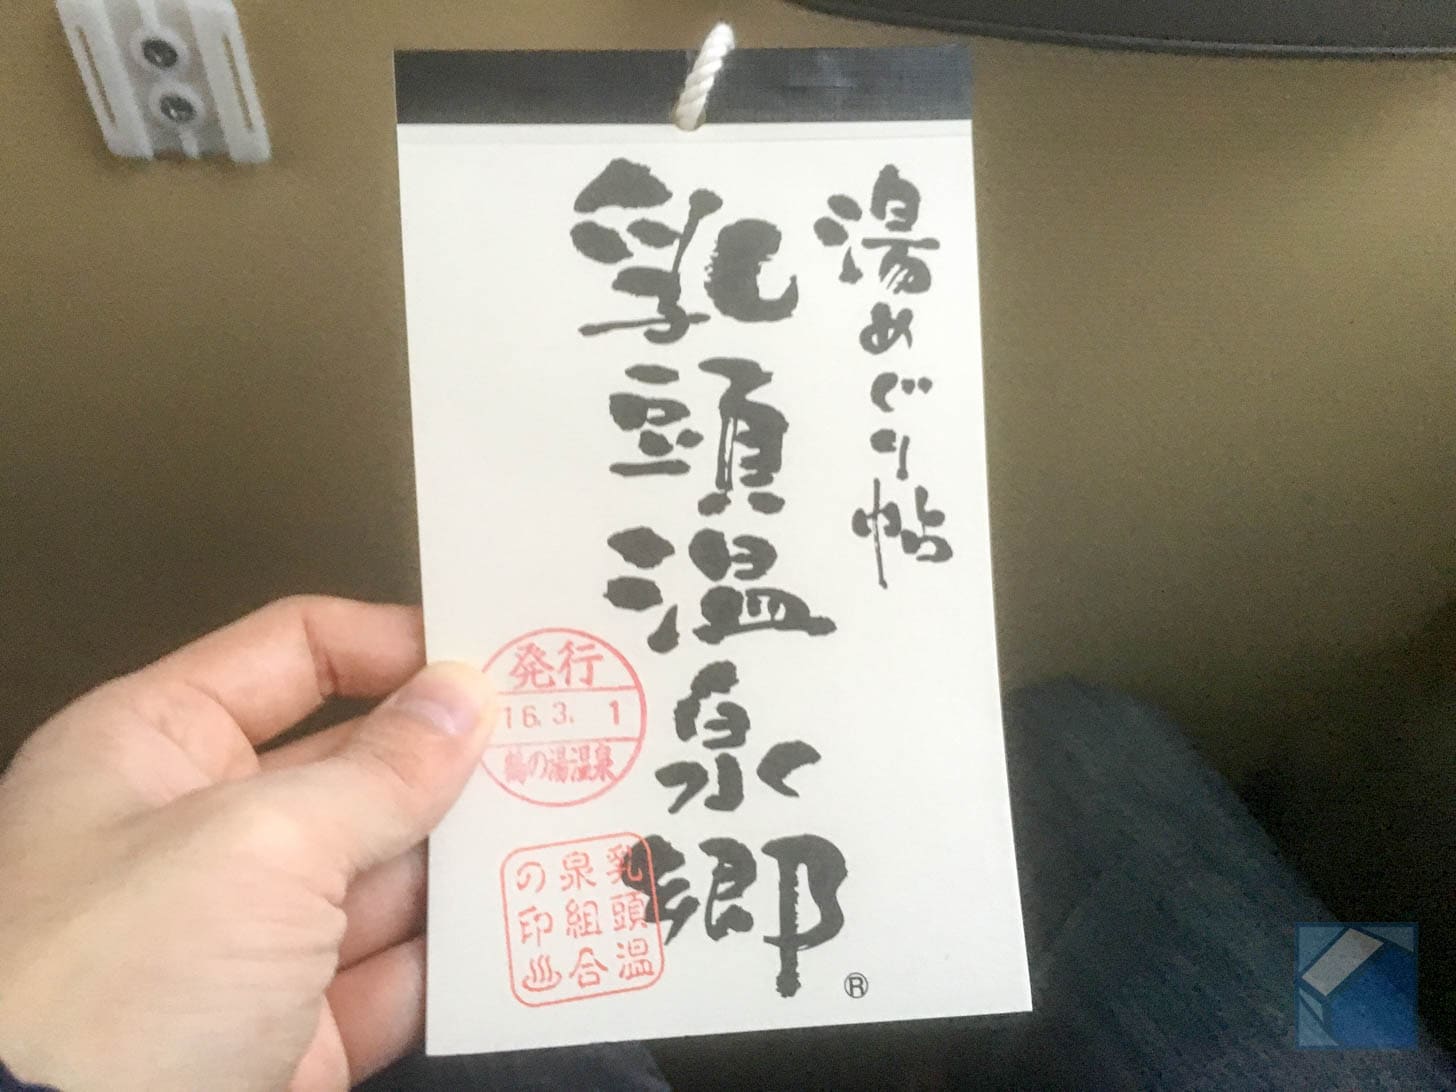 湯めぐり帖
乳頭温泉郷
®
発行
16.3. 1
鶴の湯温泉
乳頭温
泉組合
の印♨